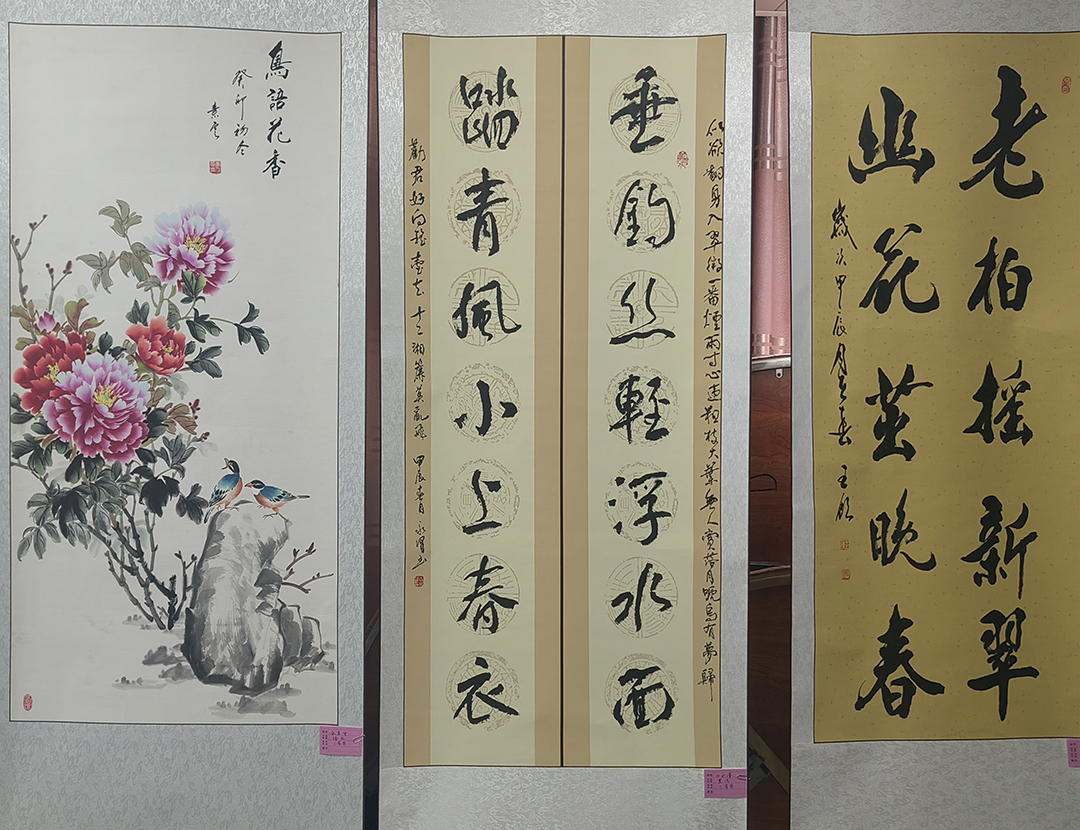 鳥語花香
癸卯初冬
似欲翻身入翠微一番煙雨寸心違粗枝大葉無人賞落月烏有夢歸
垂釣絲輕浮水面
踏青風小上春衣
勸君好向瑤臺去十二湘簾莫亂飛甲辰春月永書
老柏摇新翠
幽花茁晚春
歲次甲辰春王